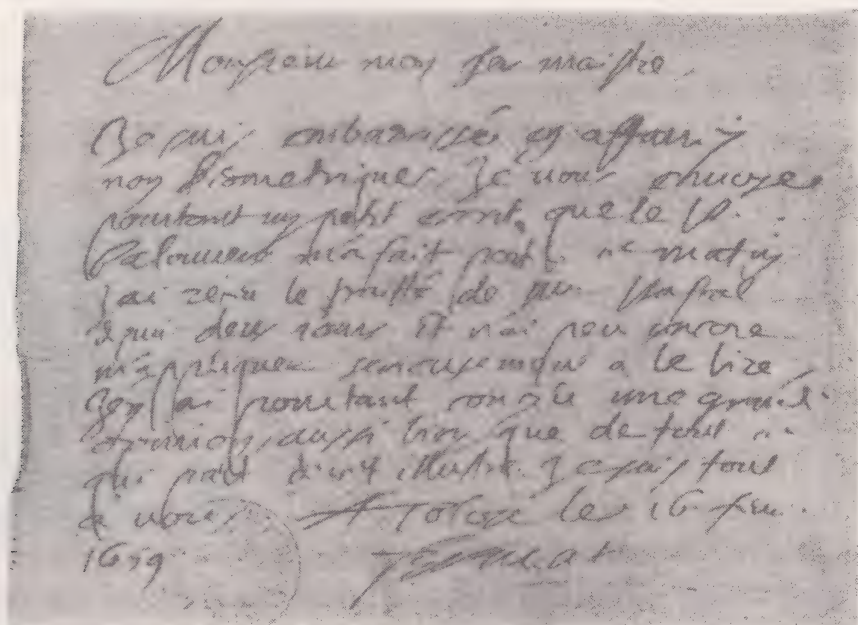 Monsieur mon cher maistre
Je suis embarassé en affaires
non Geometriques. Je vous envoye
pourtant un petit escrit que le P.
m'a fait ce matin
J'ai receu le traitté de Mr
depuis deux iours et n'ai peu encore
m'appliquer serieusement a le lire
J'en ai pourtant conceu une grande
opinion aussi bien que de tout ce
qui part de cet illustre. Je suis tout
a vous A Tolose le 16 feu.
1659 Fermat